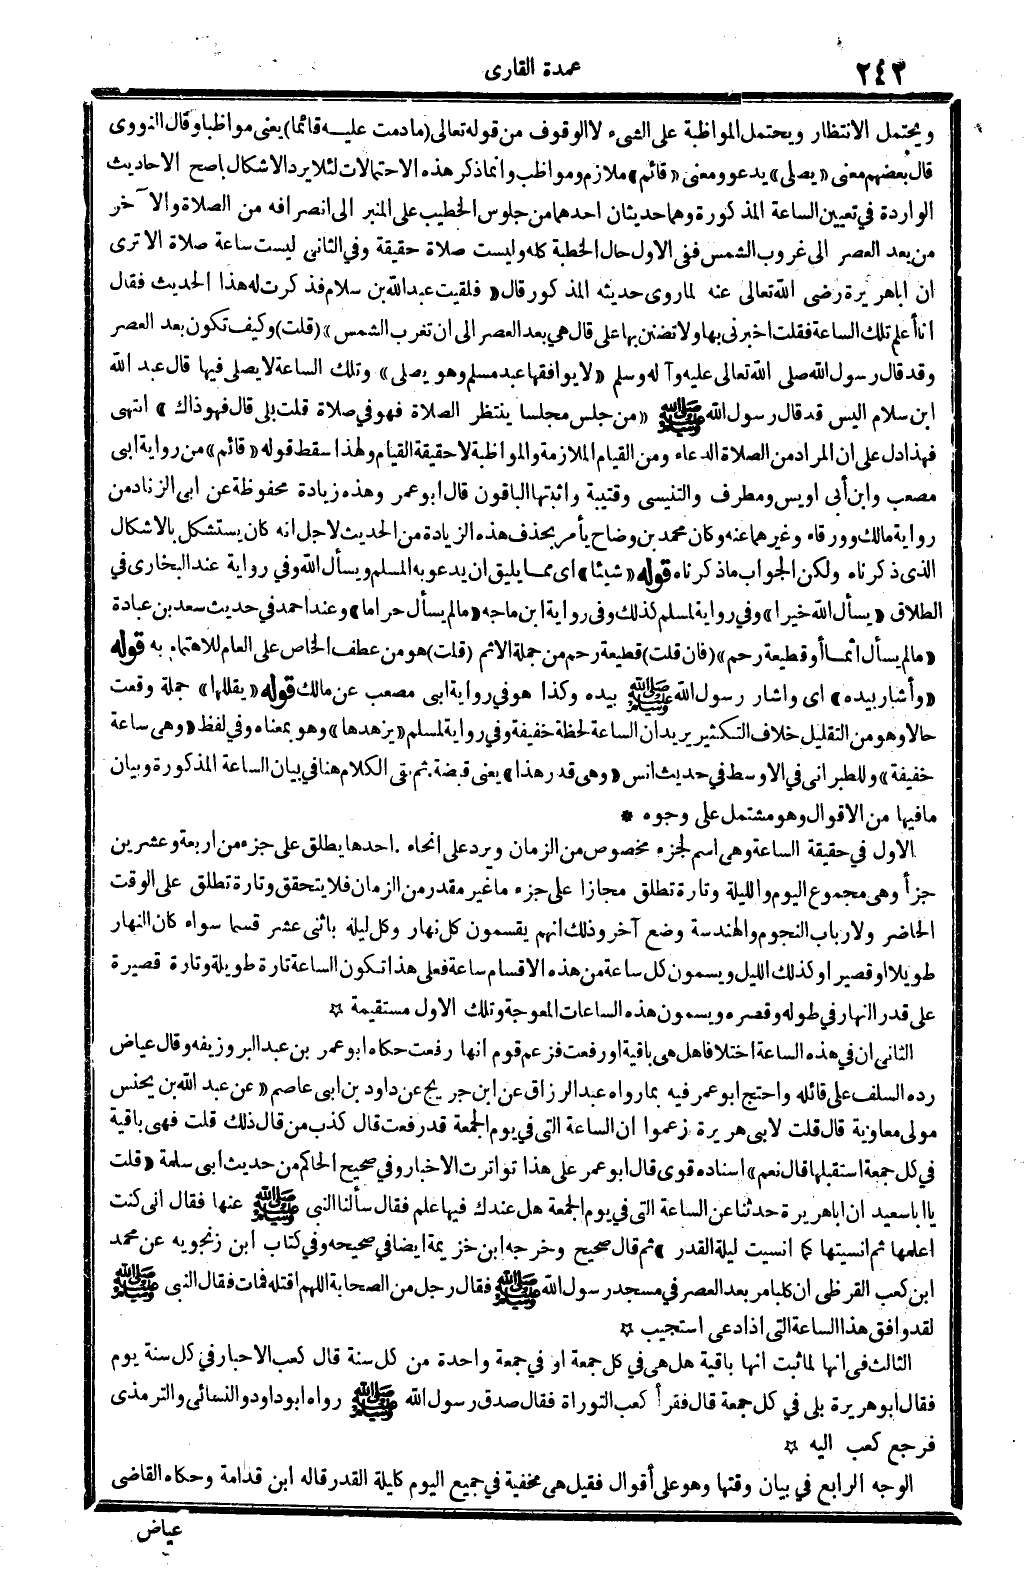 ٢٤٣
عمدة القارى
ويحتمل الانتظار ويحتمل المواظبة على الشىء لا الوقوف من قوله تعالى (ما دمت عليه قائما) يعنى مواظبا وقال النووى
قال بعضهم معنى «يصلى» يدعو ومعنى «قائم» ملازم ومواظب وانما ذكر هذه الاحتمالات لئلا يرد الاشكال باصح الاحاديث
الواردة في تعيين الساعة المذكورة وهما حديثان احدهما من جلوس الخطيب على المنبر الى انصرافه من الصلاة والآخر
من بعد العصر الى غروب الشمس ففى الاول حال الخطبة كله وليست صلاة حقيقة وفي الثانى ليست ساعة صلاة الا ترى
ان اباهريرة رضى الله تعالى عنه لما روى حديثه المذكور قال « فلقيت عبدالله بن سلام فذكرت له هذا الحديث فقال
انا أعلم تلك الساعة فقلت اخبرنى بها ولا تضنن بها على قال هي بعد العصر الى ان تغرب الشمس » (قلت) وكيف تكون بعد العصر
وقد قال رسول الله صلى الله تعالى عليه وآله وسلم « لا يوافقها عبد مسلم وهو يصلى » وتلك الساعة لا يصلى فيها قال عبد الله
ابن سلام اليس قد قال رسول الله ﷺ «من جلس مجلسا ينتظر الصلاة فهو في صلاة قلت بلى قال فهو ذاك » انتهى
فهذا دل على ان المراد من الصلاة الدعاء ومن القيام الملازمة والمواظبة لا حقيقة القيام ولهذا سقط قوله «قائم» من رواية ابى
مصعب وابن أبى اويس ومطرف والتنيسى وقتيبة واثبتها الباقون قال ابو عمر وهذه زيادة محفوظة عن ابى الزناد من
رواية مالك وورقاء وغيرهما عنه وكان محمد بن وضاح يأمر بحذف هذه الزيادة من الحديث لاجل انه كان يستشكل بالاشكال
الذى ذكرناه ولكن الجواب ما ذكرناه قوله «شيئا» اى مما يليق ان يدعو به المسلم ويسأل الله وفي رواية عند البخارى في
الطلاق «يسأل الله خيرا» وفي رواية لمسلم كذلك وفى رواية ابن ماجه «مالم يسأل حراما» وعند احمد في حديث سعد بن عبادة
«مالم يسأل اثما أو قطيعة رحم» (فان قلت) قطيعة رحم من جملة الاثم (قلت) هو من عطف الخاص على العام للاهتمام به قوله
«وأشار بيده» اى واشار رسول الله ﷺ بيده وكذا هو في رواية ابى مصعب عن مالك قوله «يقللها» جملة وقعت
حالا وهو من التقليل خلاف التكثير يريد ان الساعة لحظة خفيفة وفي رواية لمسلم «يزهدها» وهو بمعناه وفي لفظ «وهى ساعة
خفيفة» وللطبرانى في الاوسط في حديث انس «وهى قدر هذا» يعنى قبضة. ثم بقى الكلام هنا في بيان الساعة المذكورة وبيان
مافيها من الاقوال وهو مشتمل على وجوه *
الاول في حقيقة الساعة وهى اسم لجزء مخصوص من الزمان ويرد على انحاء. احدها يطلق على جزء من اربعة وعشرين
جزأ وهى مجموع اليوم والليلة وتارة تطلق مجازا على جزء ما غير مقدر من الزمان فلا يتحقق وتارة تطلق على الوقت
الحاضر ولارباب النجوم والهندسة وضع آخر وذلك انهم يقسمون كل نهار وكل ليلة باثنى عشر قسما سواء كان النهار
طويلا او قصيرا وكذلك الليل ويسمون كل ساعة من هذه الاقسام ساعة فعلى هذا تكون الساعة تارة طويلة وتارة قصيرة
على قدر النهار في طوله وقصره ويسمون هذه الساعات المعوجة وتلك الاول مستقيمة ☆
الثانى ان في هذه الساعة اختلافا هل هى باقية او رفعت فزعم قوم انها رفعت حكاه ابو عمر بن عبد البر وزيفه وقال عياض
رده السلف على قائله واحتج ابو عمر فيه بما رواه عبد الرزاق عن ابن جريج عن داود بن ابى عاصم «عن عبد الله بن يحنس
مولى معاوية قال قلت لابى هريرة زعموا ان الساعة التى في يوم الجمعة قد رفعت قال كذب من قال ذلك قلت فهى باقية
في كل جمعة استقبلها قال نعم» اسناده قوى قال ابو عمر على هذا تواترت الاخبار وفي صحيح الحاكم من حديث ابى سلمة «قلت
يا اباسعيد ان اباهريرة حدثنا عن الساعة التى في يوم الجمعة هل عندك فيها علم فقال سألنا النبى ﷺ عنها فقال انى كنت
اعلمها ثم انسيتها كما انسيت ليلة القدر» ثم قال صحيح وخرجه ابن خزيمة ايضا في صحيحه وفي كتاب ابن زنجويه عن محمد
ابن كعب القرظى ان كلبا مر بعد العصر في مسجد رسول الله ﷺ فقال رجل من الصحابة اللهم اقتله فمات فقال النبى ﷺ
لقد وافق هذا الساعة التى اذا دعى استجيب ☆
الثالث في انها لما ثبت انها باقية هل هى في كل جمعة او في جمعة واحدة من كل سنة قال كعب الاحبار في كل سنة يوم
فقال ابوهريرة بلى في كل جمعة قال فقرأ كعب التوراة فقال صدق رسول الله ﷺ رواه ابوداود والنسائى والترمذى
فرجع كعب اليه ☆
الوجه الرابع في بيان وقتها وهو على أقوال فقيل هى مخفية في جميع اليوم كليلة القدر قاله ابن قدامة وحكاه القاضى
عياض